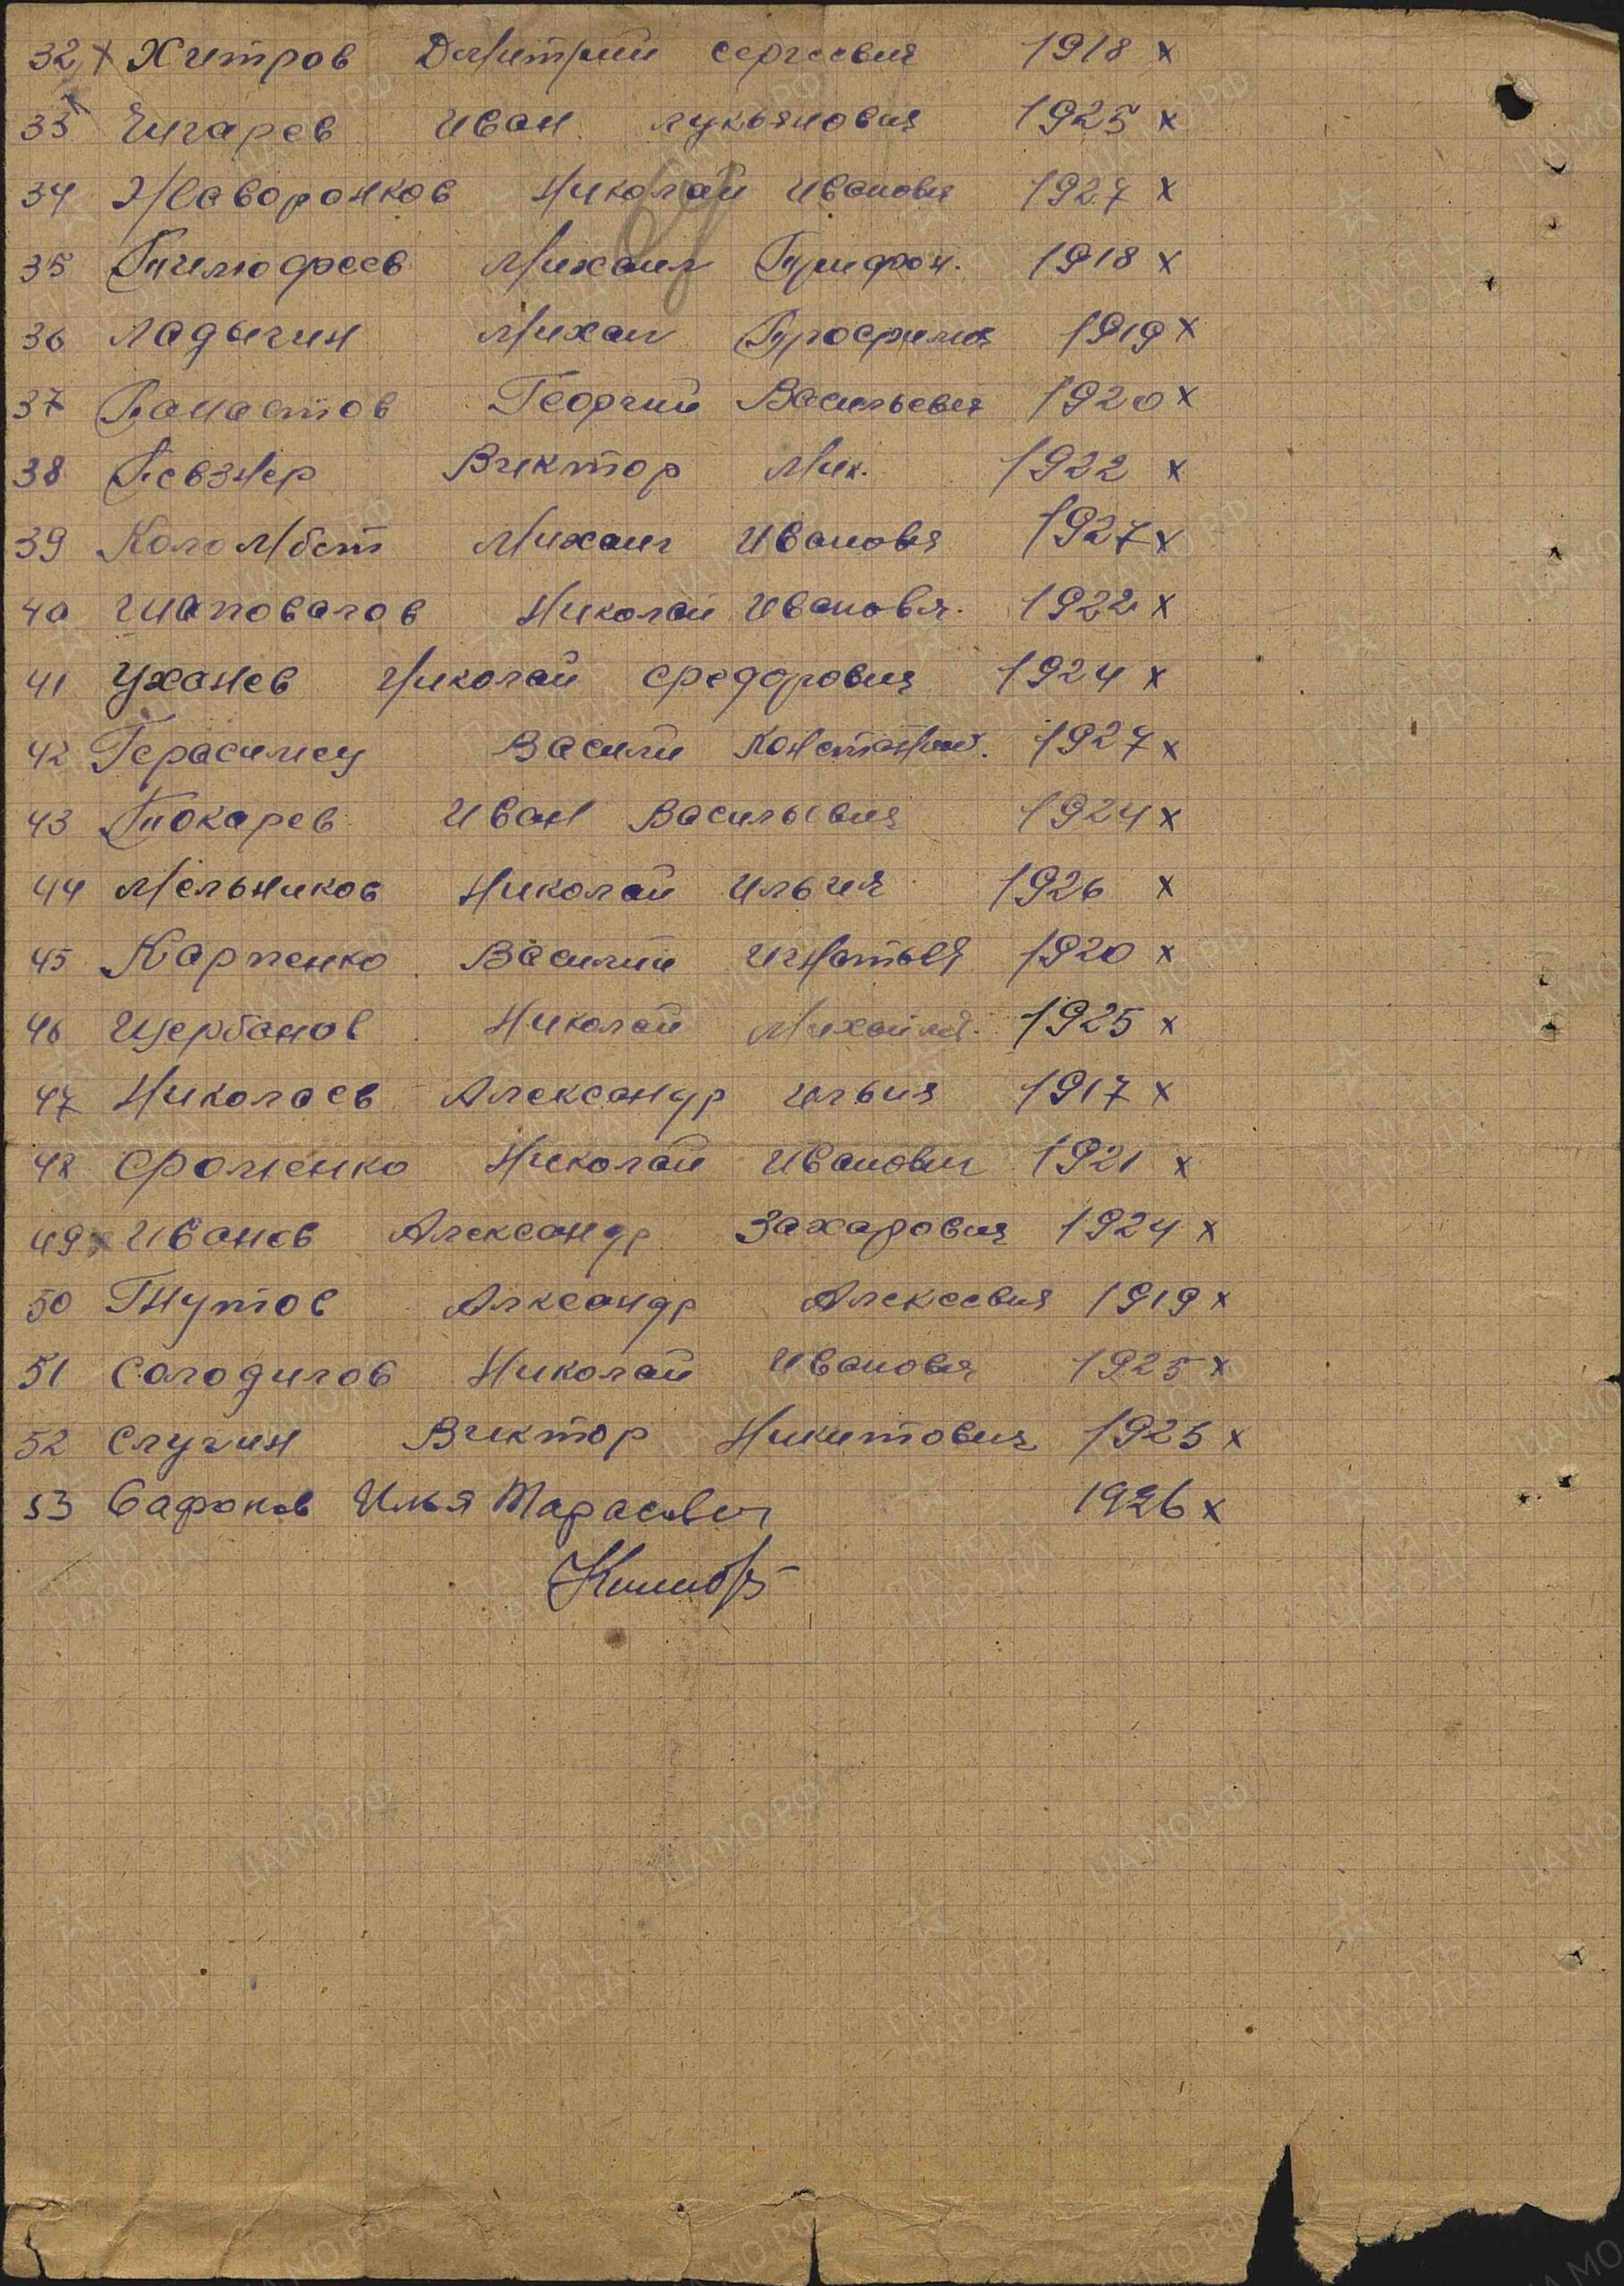 32 х Хитров Дмитрий Сергеевич 1918 х
33 х Чигарев Иван Лукьянович 1925 х
34 Жаворонков Николай Иванович 1927 х
35 Тимофеев Михаил Трифон. 1918 х
36 Ладыгин Михаил Трофимов 1919 х
37 Банастов Георгий Васильевич 1920 х
38 Певзнер Виктор Мих. 1922 х
39 Коломбет Михаил Иванович 1927 х
40 Шаповалов Николай Иванович. 1922 х
41 Уханев Николай Федорович 1924 х
42 Герасимец Васили Константин. 1927 х
43 Токарев Иван Васильевич 1924 х
44 Мельников Николай Ильич 1926 х
45 Карпенко Василий Игнатьев 1920 х
46 Щербанов Николай Михайлов. 1925 х
47 Николаев Александр Ильич 1917 х
48 Фоменко Николай Иванович 1921 х
49 х Иванов Александр Захарович 1924 х
50 Гнутов Алксандр Алексеевич 1919 х
51 Солодилов Николай Иванович 1925 х
52 Слугин Виктор Никитович 1925 х
53 Сафонов Илья Тарасович 1926 х